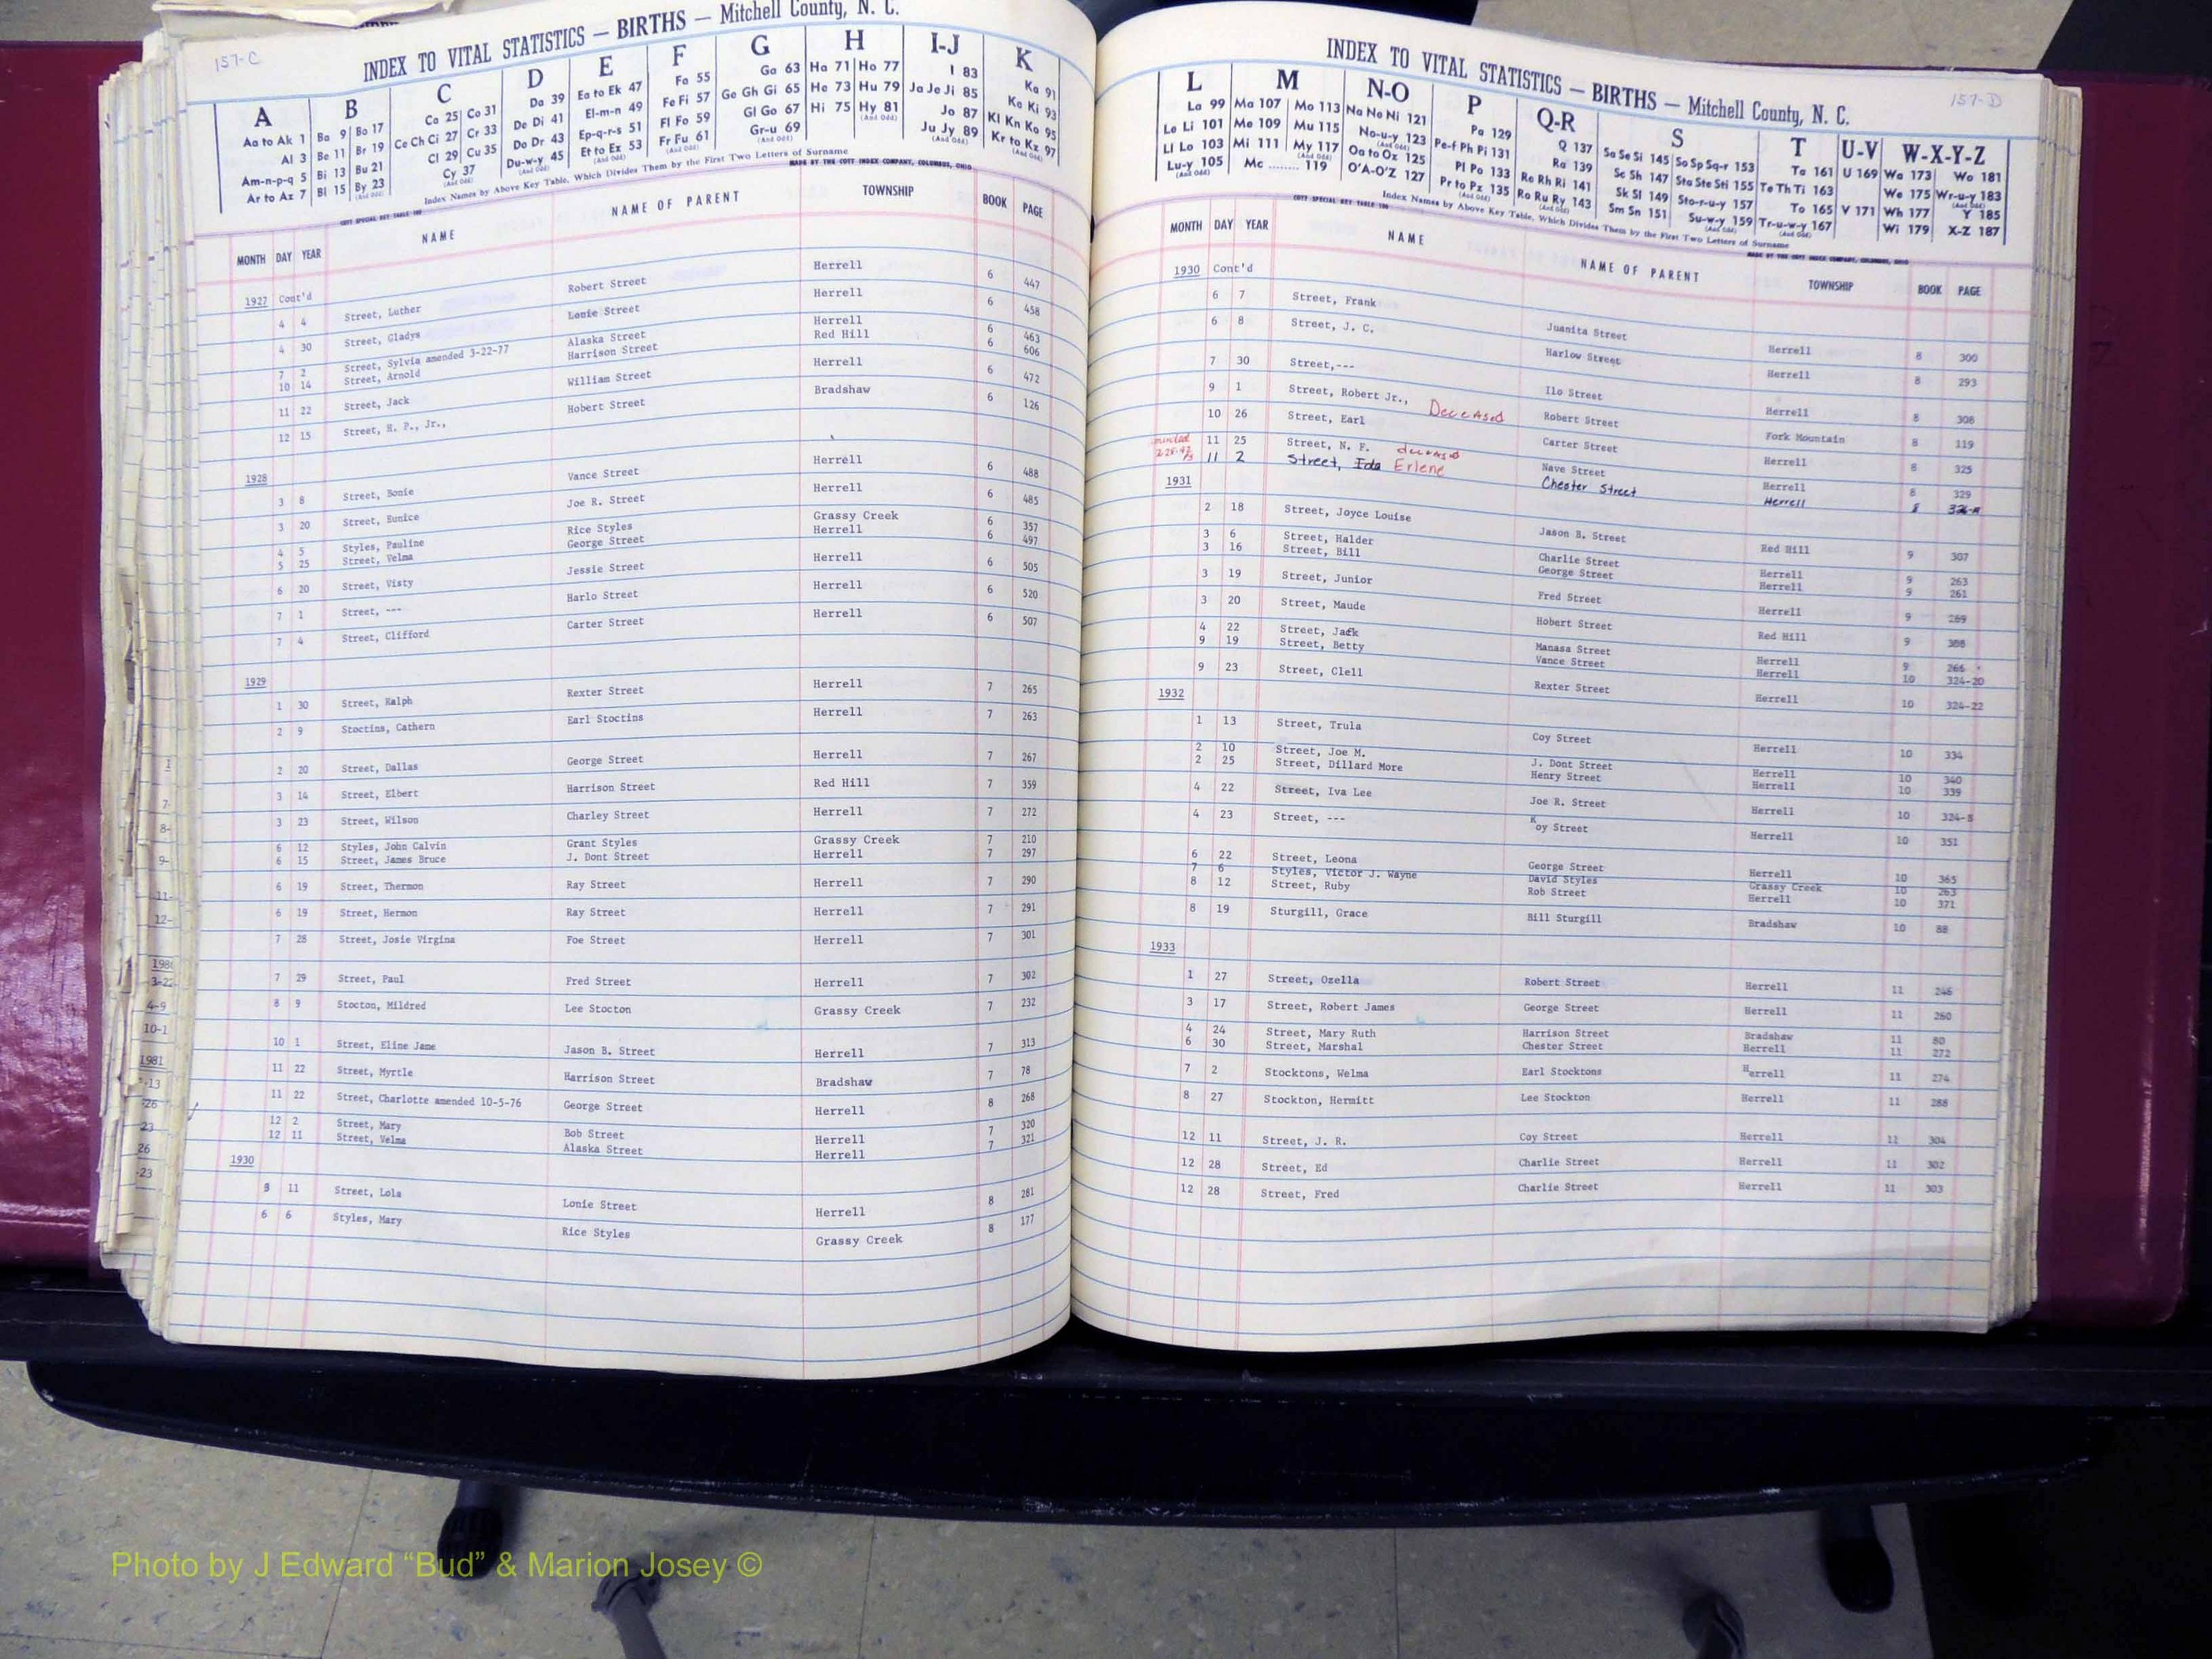 157-C
INDEX TO VITAL STATISTICS — BIRTHS — Mitchell County, N. C.
A B C D E F G H I-J K
Aa to Ak 1 Ba 9 Bo 17 Ca 25 Co 31 Da 39 Ea to Ek 47 Fa 55 Ga 63 Ha 71 Ho 77 I 83 Ka 91
Al 3 Be 11 Br 19 Ce Ch Ci 27 Cr 33 De Di 41 El-m-n 49 Fe Fi 57 Ge Gh Gi 65 He 73 Hu 79 Ja Je Ji 85 Ke Ki 93
Am-n-p-q 5 Bi 13 Bu 21 Cl 29 Cu 35 Do Dr 43 Ep-q-r-s 51 Fl Fo 59 Gl Go 67 Hi 75 Hy 81 (And Odd) Jo 87 Kl Kn Ko 95
Ar to Az 7 Bl 15 By 23 (And Odd) Cy 37 (And Odd) Du-w-y 45 Et to Ez 53 (And Odd) Fr Fu 61 (And Odd) Gr-u 69 (And Odd) Ju Jy 89 (And Odd) Kr to Kz 97 (And Odd)
Index Names by Above Key Table, Which Divides Them by the First Two Letters of Surname
COTT SPECIAL KEY TABLE 100 MADE BY THE COTT INDEX COMPANY, COLUMBUS, OHIO
MONTH DAY YEAR NAME NAME OF PARENT TOWNSHIP BOOK PAGE
1927 Cont'd
4 4 Street, Luther Robert Street Herrell 6 447
4 30 Street, Gladys Lonie Street Herrell 6 458
7 2 Street, Sylvia amended 3-22-77 Alaska Street Herrell 6 463
10 14 Street, Arnold Harrison Street Red Hill 6 606
11 22 Street, Jack William Street Herrell 6 472
12 15 Street, H. P., Jr., Hobert Street Bradshaw 6 126
1928
3 8 Street, Bonie Vance Street Herrell 6 488
3 20 Street, Eunice Joe R. Street Herrell 6 485
4 5 Styles, Pauline Rice Styles Grassy Creek 6 357
5 25 Street, Velma George Street Herrell 6 497
6 20 Street, Visty Jessie Street Herrell 6 505
7 1 Street, --- Harlo Street Herrell 6 520
7 4 Street, Clifford Carter Street Herrell 6 507
1929
1 30 Street, Ralph Rexter Street Herrell 7 265
2 9 Stoctins, Cathern Earl Stoctins Herrell 7 263
2 20 Street, Dallas George Street Herrell 7 267
3 14 Street, Elbert Harrison Street Red Hill 7 359
3 23 Street, Wilson Charley Street Herrell 7 272
6 12 Styles, John Calvin Grant Styles Grassy Creek 7 210
6 15 Street, James Bruce J. Dont Street Herrell 7 297
6 19 Street, Thermon Ray Street Herrell 7 290
6 19 Street, Hermon Ray Street Herrell 7 291
7 28 Street, Josie Virgina Foe Street Herrell 7 301
7 29 Street, Paul Fred Street Herrell 7 302
8 9 Stocton, Mildred Lee Stocton Grassy Creek 7 232
10 1 Street, Eline Jane Jason B. Street Herrell 7 313
11 22 Street, Myrtle Harrison Street Bradshaw 7 78
11 22 Street, Charlotte amended 10-5-76 George Street Herrell 8 268
12 2 Street, Mary Bob Street Herrell 7 320
12 11 Street, Velma Alaska Street Herrell 7 321
1930
11 Street, Lola Lonie Street Herrell 8 281
6 6 Styles, Mary Rice Styles Grassy Creek 8 177
157-D
INDEX TO VITAL STATISTICS — BIRTHS — Mitchell County, N. C.
L M N-O P Q-R S T U-V W-X-Y-Z
La 99 Ma 107 Mo 113 Na Ne Ni 121 Pa 129 Q 137 Sa Se Si 145 So Sp Sq-r 153 Ta 161 U 169 Wa 173 Wo 181
Le Li 101 Me 109 Mu 115 No-u-y 123 (And Odd) Pe-f Ph Pi 131 Ra 139 Sc Sh 147 Sta Ste Sti 155 Te Th Ti 163 We 175 Wr-u-y 183 (And Odd)
Ll Lo 103 Mi 111 My 117 (And Odd) Oa to Oz 125 Pl Po 133 Re Rh Ri 141 Sk Sl 149 Sto-r-u-y 157 To 165 V 171 Wh 177 Y 185
Lu-y 105 (And Odd) Mc ........ 119 O'A-O'Z 127 Pr to Pz 135 (And Odd) Ro Ru Ry 143 (And Odd) Sm Sn 151 Su-w-y 159 (And Odd) Tr-u-w-y 167 (And Odd) Wi 179 X-Z 187
Index Names by Above Key Table, Which Divides Them by the First Two Letters of Surname
COTT SPECIAL KEY TABLE 100 MADE BY THE COTT INDEX COMPANY, COLUMBUS, OHIO
MONTH DAY YEAR NAME NAME OF PARENT TOWNSHIP BOOK PAGE
1930 Cont'd
6 7 Street, Frank Juanita Street Herrell 8 300
6 8 Street, J. C. Harlow Street Herrell 8 293
7 30 Street,--- Ilo Street Herrell 8 308
9 1 Street, Robert Jr., Deceased Robert Street Fork Mountain 8 119
10 26 Street, Earl Carter Street Herrell 8 325
11 25 Street, N. F. deceased Nave Street Herrell 8 329
11 2 Street, Ida Erlene Chester Street Herrell 8
1931
2 18 Street, Joyce Louise Jason B. Street Red Hill 9 307
3 6 Street, Halder Charlie Street Herrell 9 263
3 16 Street, Bill George Street Herrell 9 261
3 19 Street, Junior Fred Street Herrell 9 269
3 20 Street, Maude Hobert Street Red Hill 9 308
4 22 Street, Jack Manasa Street Herrell 9 266
9 19 Street, Betty Vance Street Herrell 10 324-20
9 23 Street, Clell Rexter Street Herrell 10 324-22
1932
1 13 Street, Trula Coy Street Herrell 10 334
2 10 Street, Joe M. J. Dont Street Herrell 10 340
2 25 Street, Dillard More Henry Street Herrell 10 339
4 22 Street, Iva Lee Joe R. Street Herrell 10 324-8
4 23 Street, --- Koy Street Herrell 10 351
6 22 Street, Leona George Street Herrell 10 365
7 6 Styles, Victor J. Wayne David Styles Grassy Creek 10 263
8 12 Street, Ruby Rob Street Herrell 10 371
8 19 Sturgill, Grace Bill Sturgill Bradshaw 10 88
1933
1 27 Street, Ozella Robert Street Herrell 11 246
3 17 Street, Robert James George Street Herrell 11 260
4 24 Street, Mary Ruth Harrison Street Bradshaw 11 80
6 30 Street, Marshal Chester Street Herrell 11 272
7 2 Stocktons, Welma Earl Stocktons Herrell 11 274
8 27 Stockton, Hermitt Lee Stockton Herrell 11 288
12 11 Street, J. R. Coy Street Herrell 11 304
12 28 Street, Ed Charlie Street Herrell 11 302
12 28 Street, Fred Charlie Street Herrell 11 303
Photo by J Edward “Bud” & Marion Josey ©